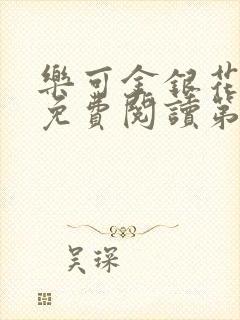 樂可金銀花
免費閱讀第
吴琛